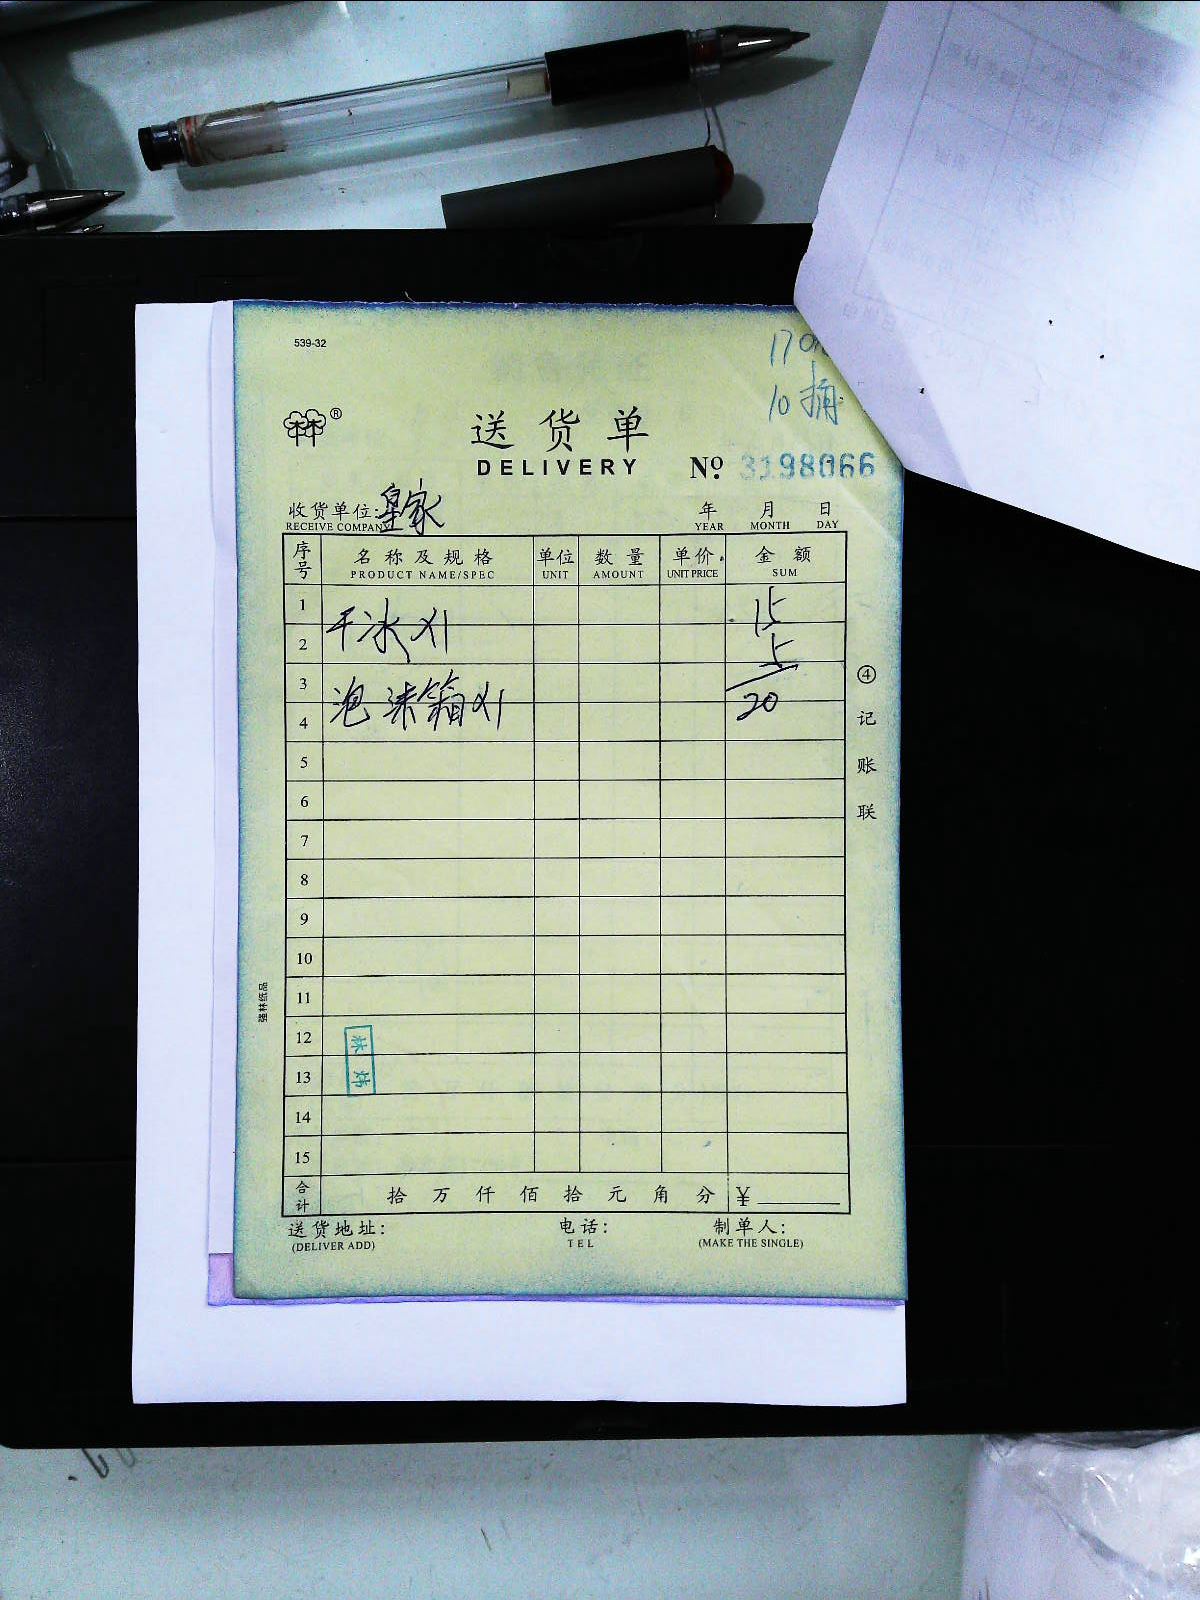 539-32
10 捅
林 ®
送货单
DELIVERY
№ 3198066
收货单位: 皇家
RECEIVE COMPANY
年 月 日
YEAR MONTH DAY
序号 名称及规格 单位 数量 单价 金额
PRODUCT NAME/SPEC UNIT AMOUNT UNIT PRICE SUM
1 15
干冰 X1
2 5
3
泡沫箱X1 20
4
5
6
7
8
9
10
11
12
13
14
15
④记账联
强林纸品
林炜
合计 拾 万 仟 佰 拾 元 角 分 ¥
送货地址: 电话: 制单人:
(DELIVER ADD) TEL (MAKE THE SINGLE)